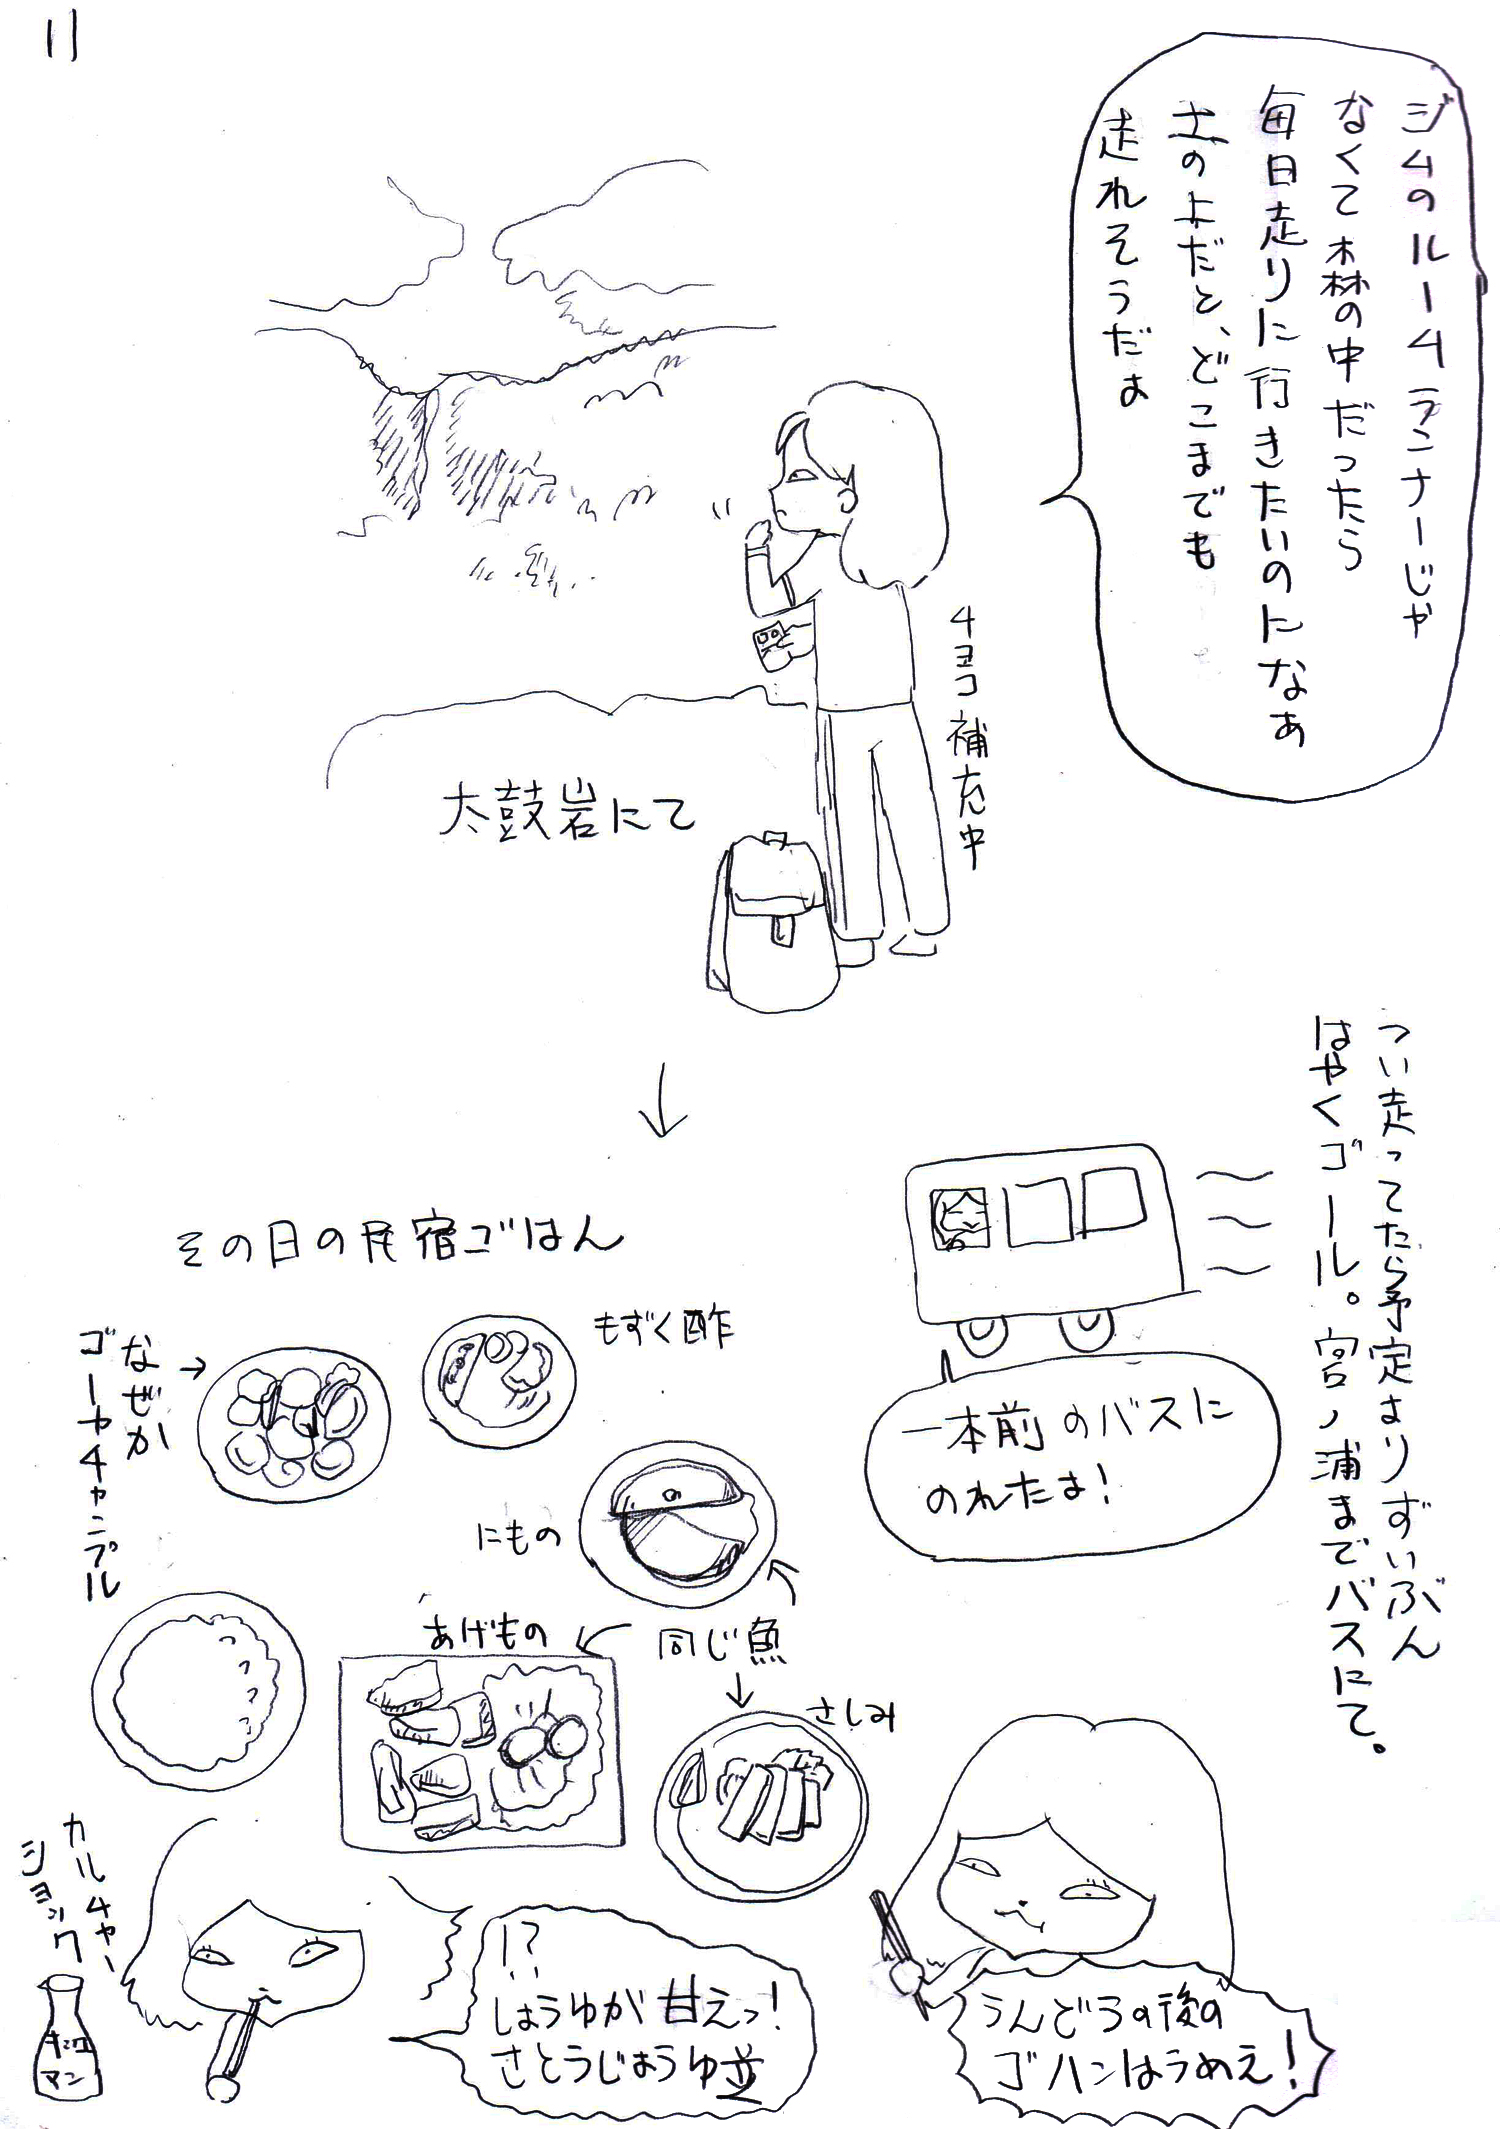 11
ジムのルームランナーじゃ
なくて森の中だったら
毎日走りに行きたいのになぁ
土の上だと、どこまでも
走れそうだよ
チョコ補充中
太鼓岩にて
↓
つい走ってたら予定よりずいぶん
はやくゴール。宮ノ浦までバスにて。
一本前のバスに
のれたよ!
その日の民宿ごはん
もずく酢
なぜか→
ゴーヤチャンプル
にもの
同じ魚
あげもの
さしみ
うんどうの後の
ゴハンはうめえ!
!?
しょうゆが甘えっ!
さとうじょうゆ並
カルチャー
ショック
キッコー
マン